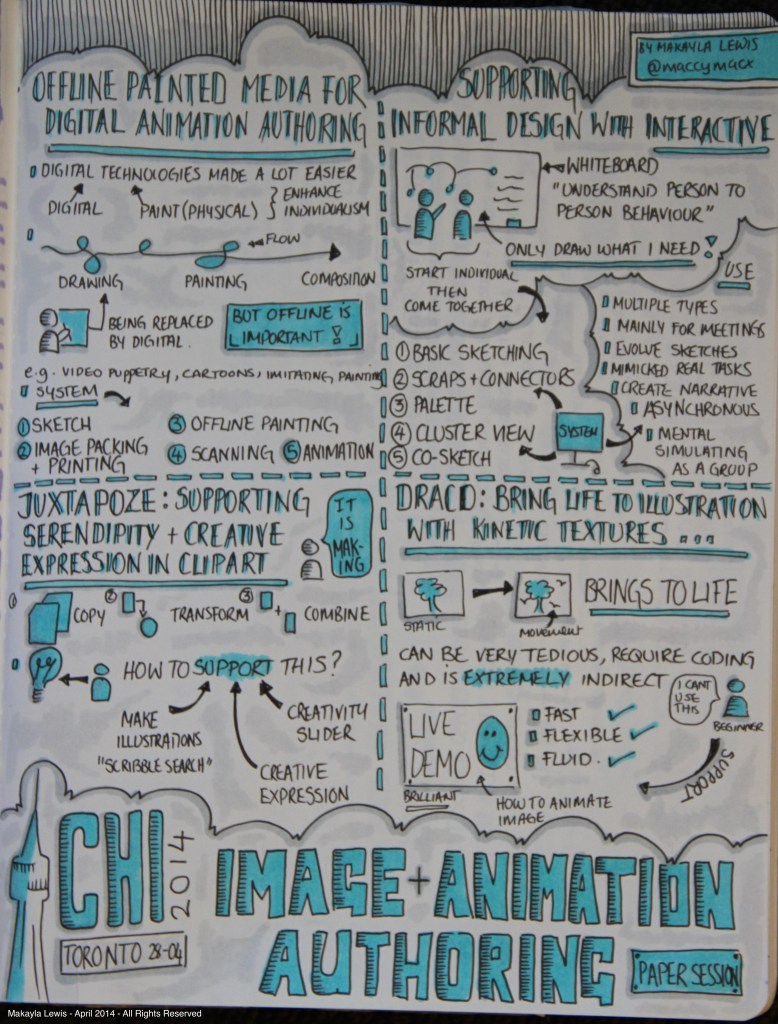 BY MAKAYLA LEWIS
@maccymacx
OFFLINE PAINTED MEDIA FOR
DIGITAL ANIMATION AUTHORING
DIGITAL TECHNOLOGIES MADE A LOT EASIER
DIGITAL PAINT (PHYSICAL) } ENHANCE
INDIVIDUALISM
FLOW
DRAWING PAINTING COMPOSITION
BEING REPLACED
BY DIGITAL.
BUT OFFLINE IS
IMPORTANT!
e.g. VIDEO PUPPETRY, CARTOONS, IMITATING PAINTING
SYSTEM
① SKETCH
② IMAGE PACKING
+ PRINTING
③ OFFLINE PAINTING
④ SCANNING ⑤ ANIMATION
SUPPORTING
INFORMAL DESIGN WITH INTERACTIVE
WHITEBOARD
"UNDERSTAND PERSON TO
PERSON BEHAVIOUR"
ONLY DRAW WHAT I NEED!
START INDIVIDUAL
THEN
COME TOGETHER
USE
MULTIPLE TYPES
MAINLY FOR MEETINGS
EVOLVE SKETCHES
MIMICKED REAL TASKS
CREATE NARRATIVE
ASYNCHRONOUS
MENTAL
SIMULATING
AS A GROUP
① BASIC SKETCHING
② SCRAPS + CONNECTORS
③ PALETTE
④ CLUSTER VIEW
⑤ CO-SKETCH
SYSTEM
JUXTAPOZE: SUPPORTING
SERENDIPITY + CREATIVE
EXPRESSION IN CLIPART
IT
IS
MAK-
ING
① COPY ② TRANSFORM ③ + COMBINE
HOW TO SUPPORT THIS?
MAKE
ILLUSTRATIONS
"SCRIBBLE SEARCH"
CREATIVITY
SLIDER
CREATIVE
EXPRESSION
DRACO: BRING LIFE TO ILLUSTRATION
WITH KINETIC TEXTURES ...
STATIC
MOVEMENT
BRINGS TO LIFE
CAN BE VERY TEDIOUS, REQUIRE CODING
AND IS EXTREMELY INDIRECT
I CANT
USE
THIS
BEGINNER
LIVE
DEMO
BRILLIANT
FAST ✓
FLEXIBLE ✓
FLUID. ✓
HOW TO ANIMATE
IMAGE
SUPPORT
CHI
2014
TORONTO 28-04
IMAGE + ANIMATION
AUTHORING
PAPER SESSION
Makayla Lewis - April 2014 - All Rights Reserved